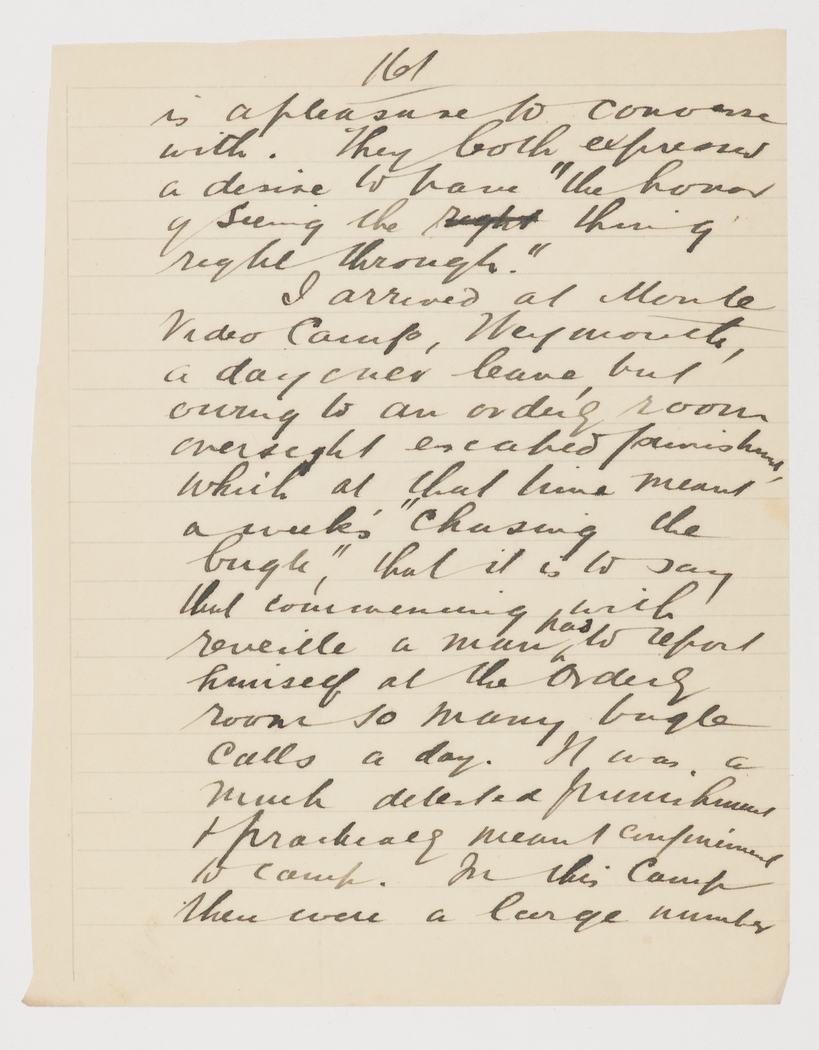 161
is a pleasure to converse
with. They both expressed
a desire to have "the honor
of seeing the right thing
right through."
I arrived at Monte
Video Camp, Weymouth,
a day over leave, but
owing to an orderly room
oversight escaped punishment,
which at that time meant
a week's "chasing the
bugle," that it is to say
that commencing with
reveille a man has to report
himself at the Orderly
room so many bugle
calls a day. It was a
much detested punishment
& practically meant confinement
to camp. In this Camp
there were a large number